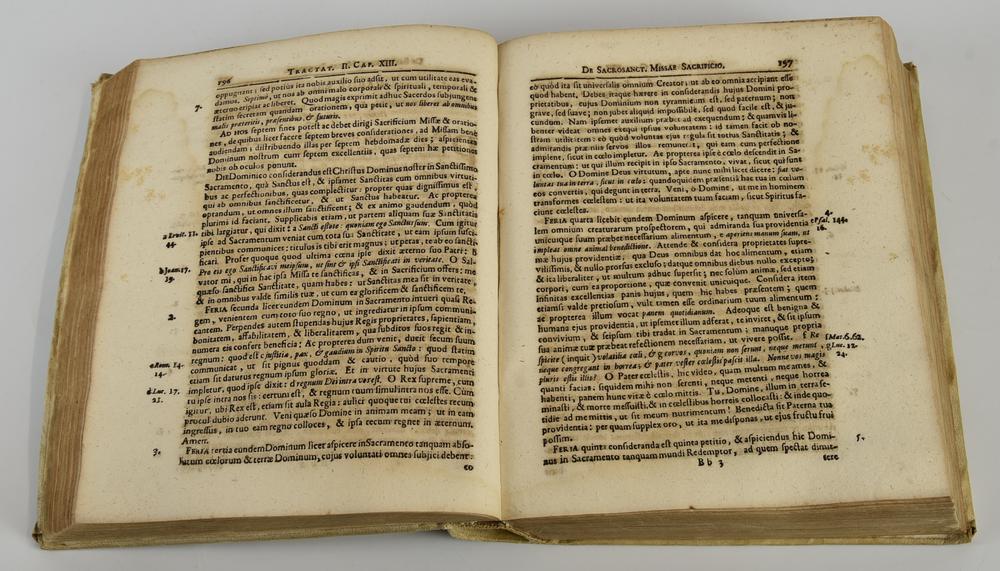 196
TRACTAT. II. CAP. XIII.
oppugnant; sed potius ita nobis auxilio suo adsit, ut cum utilitate eas eva-
damus. Septimò, ut nos ab omni malo corporali & spirituali, temporali &
7.
æterno eripiat ac liberet. Quod magis exprimit adhuc Sacerdos subjungens
statim secretam quandam orationem, qua petit, ut nos liberet ab omnibus
malis præteritis, præsentibus, & futuris.
AD hos septem fines potest ac debet dirigi Sacrificium Missæ & oratio-
nes, de quibus licet facere septem breves considerationes, ad Missam bene
audiendam; distribuendo illas per septem hebdomadæ dies; aspiciendo
Dominum nostrum cum septem excellentiis, quas septem hæ petitiones
nobis ob oculos ponunt.
DIE Dominico considerandus est Christus Dominus noster in Sanctissimo
Sacramento, quà Sanctus est, & ipsamet Sanctitas cum omnibus virtuti-
bus ac perfectionibus, quas complectitur: propter quas dignissimus est,
qui ab omnibus sanctificetur, & ut Sanctus habeatur. Ac propterea
optandum, ut omnes illum sanctificent; & ex animo gaudendum, quòd
plurimi id faciant. Supplicabis etiam, ut partem aliquam suæ Sanctitatis
a Levit. 11.
44.
tibi largiatur, qui dixit: a Sancti estote: quoniam ego Sanctus sum. Cum igitur
ipse ad Sacramentum veniat cum tota sua Sanctitate, ut eam ipsum susci-
pientibus communicet: titulus is tibi erit magnus; ut petas, te ab eo sancti-
ficari. Profer quoque quod ultima cœna ipse dixit æterno suo Patri: b
b Joan. 17.
19.
Pro eis ego Sanctifico meipsum, ut sint & ipsi Sanctificati in veritate. O Sal-
vator mi, qui in hac ipsa Missa te sanctificas, & in Sacrificium offers: me
quæso sanctifica Sanctitate, quam habes: ut Sanctitas mea sit in veritate,
& in omnibus valde similis tuæ, ut cum ea glorificem & sanctificem te.
2.
FERIA secunda licet eundem Dominum in Sacramento intueri quasi Re-
gem, venientem cum toto suo regno, ut ingrediatur in ipsum communi-
cantem. Perpendes autem stupendas hujus Regis proprietates, sapientiam,
bonitatem, affabilitatem, & liberalitatem, qua subditos suos regit & in-
numera eis confert beneficia; Ac propterea dum venit, ducit secum suum
regnum: quod est c justitia, pax, & gaudium in Spiritu Sancto: quod statim
c Rom. 14.
14.
communicat, ut sit pignus quoddam & cautio, quòd suo tempore
etiam sit daturus regnum ipsum gloriæ. Et in virtute hujus Sacramenti
d Luc. 17.
21.
impletur, quod ipse dixit: d regnum Dei intra vos est. O Rex supreme, cum
tu ipse intra nos sis: certum est, & regnum tuum simul intra nos esse. Cum
igitur, ubi Rex est, etiam sit aula Regia: aulici quoque tui cœlestes recum
procul dubio aderunt. Veni quæso Domine in animam meam; ut in eam
ingressus, in tuo eam regno colloces, & ipsa tecum regnet in æternum.
Amen.
3.
FERIA tertia eundem Dominum licet aspicere in Sacramento tanquam abso-
lutum cœlorum & terræ Dominum, cujus voluntati omnes subjici debent:
eo
DE SACROSANCT. MISSAE SACRIFICIO.
197
eo quòd ita sit universalis omnium Creator: ut ab eo omnia accipiant esse
quod habent. Debes itaque hærere in considerandis hujus Domini pro-
prietatibus, cujus Dominium non tyrannicum est, sed paternum; non
grave, sed suave; non jubet aliquid impossibile, sed quod facile est, & ju-
cundum. Nam ipsemet auxilium præbet ad exequendum; & quamvis li-
benter videat omnes exequi ipsius voluntatem: id tamen facit ob no-
stram utilitatem: eò quòd voluntas ejus regula sit totius Sanctitatis; &
admitabis præmiis servos illos remuneret, qui eam cum perfectione
implent, sicut in cœlo impletur. Ac propterea ipse è cœlo descendit in Sa-
cramentum: ut qui illum recipit in ipso Sacramento, vivat, sicut qui sunt
in cœlo. O Domine Deus virtutum, apte nunc mihi licet dicere: fiat vo-
luntas tua in terra, sicut in cœlo: quandoquidem præsentiâ hac tua in cœlum
eos convertis, qui degunt in terra. Veni, ò Domine, ut me in hominem
transformes cœlestem: ut ita voluntatem tuam faciam, sicut Spiritus fa-
ciunt cœlestes.
4.
FERIA quarta licebit eundem Dominum aspicere, tanquam universa-
lem omnium creaturarum prospectorem, qui admiranda sua providentia
e Psal. 144.
16.
unicuique suum præbet necessarium alimentum, e aperiens manum suam, ut
impleas omne animal benedictione. Attende & considera proprietates supre-
mæ hujus providentiæ, qua Deus omnibus dat hoc alimentum, etiam
vilissimis, & nullo prorsus excluso; datque omnibus diebus nullo excepto;
& ita liberaliter, ut multum adhuc supersit; nec solùm animæ, sed etiam
corpori, cum ea proportione, quæ convenit unicuique. Considera item
infinitas excellentias panis hujus, quem hic habes præsentem; quem
etiamsi valde pretiosum, vult tamen esse ordinarium tuum alimentum:
ac propterea illum vocat panem quotidianum. Adeoque est benigna &
humana ejus providentia, ut ipsemet illum adferat, te invitet, & sit ipsum
convivium, & seipsum tibi tradat in Sacramentum; manuque propria
sua animæ tuæ præbeat refectionem necessariam, ut vivere possit. f Re
f Mat. 6. 62.
g Luc. 12.
24.
spicite (inquit) volatilia cœli, & g corvos, quoniam non serunt, neque metunt,
neque congregant in horrea; & pater vester cœlestis pascit illa. Nonne vos magis
pluris estis illis? O Pater cœlestis, hîc video, quam multum me ames, &
quanti facias: siquidem mihi non serenti, neque metenti, neque horrea
habenti, panem hunc vitæ è cœlo mittis. Tu, Domine, illum in terra se-
minasti, & morte messuisti, & in cœlestibus horreis collocasti: & inde quo-
tidie ad me mittis, ut sit meum nutrimentum! Benedicta sit Paterna tua
providentia: per quam supplex oro, ut ita me disponas, ut ejus fructu frui
possim.
5.
FERIA quinta consideranda est quinta petitio, & aspiciendus hic Domi-
nus in Sacramento tanquam mundi Redemptor, ad quem spectat dimit-
Bb 3
tere